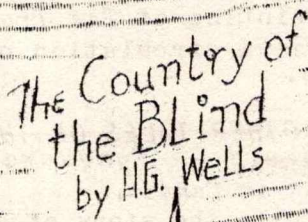 The Country of
the BLind
by H.G. WeLLs